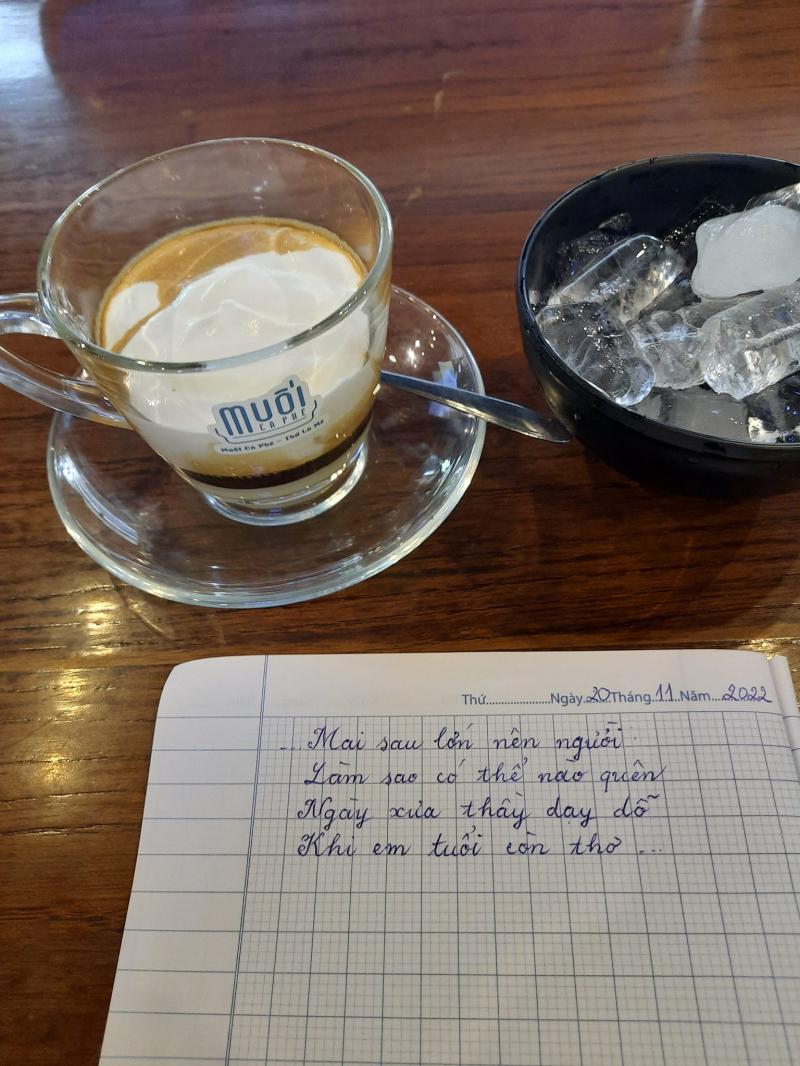 MUỐI
CÀ PHÊ
Muối Cà Phê - Thứ Lạ Mê
Thứ....................Ngày..20..Tháng..11..Năm....2022
... Mai sau lớn nên người
Làm sao có thể nào quên
Ngày xưa thầy dạy dỗ
Khi em tuổi còn thơ ...